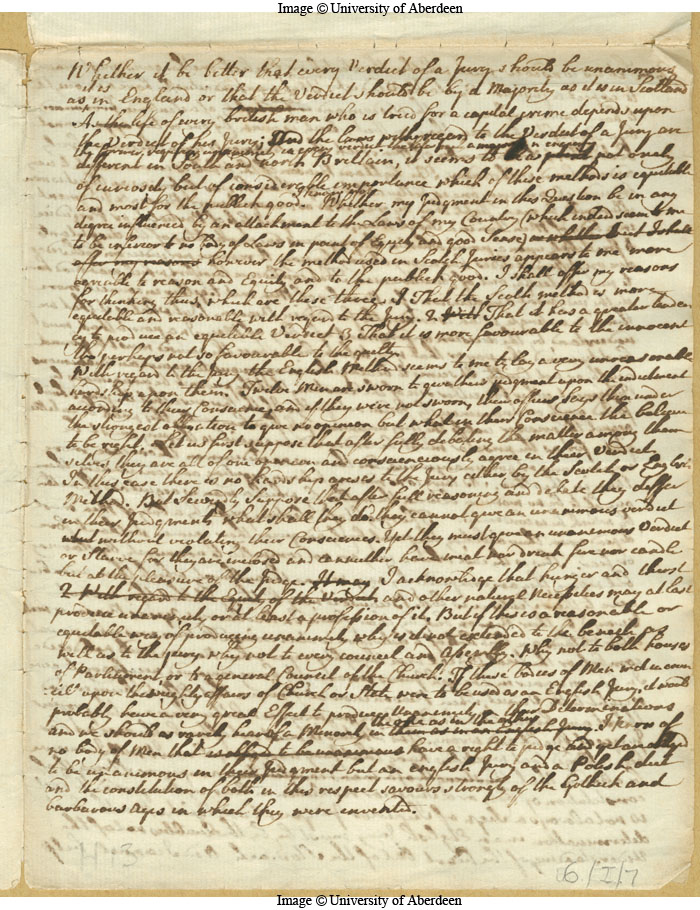 Image © University of Aberdeen
Whether it be better that every Verdict of a Jury should be unanimous
as it is in England or that the Verdict should be by a Majority as it is in Scotland
As the life of every british man who is tried for a capital crime depends upon
the Verdict of his Jury; And the laws with regard to the Verdict of a Jury are
different in South and North Brittain, it seems to be a point not onely
of curiosity but of considerable importance which of these methods is equitable
and most for the publick good. Whether my Judgment in this Question be in any
degree influenced by an attachment to the Laws of my Country (which indeed seem to me
to be inferior to no body of Laws in point of Equity and good Sense)
however the method used in Scotch Juries appears to me more
agreable to reason and Equity and to the publick good. I shall offer my reasons
for thinking thus, which are these three. 1 That the Scotch method is more
equitable and reasonable with regard to the Jury. 2 That it has a greater tenden
cy to produce an equitable Verdict 3 That it is more favourable to the innocent
tho perhaps not so favourable to the guilty
With regard to the Jury the English Method seems to me to lay a very unreasonable
hardship upon them. Twelve Men are sworn to give their Judgment upon the indictment
according to their Conscience, and if they were not sworn, their office lays them under
the strongest obligation to give no opinion but what in their Conscience they believe
to be right. Let us first suppose that after fully debating the matter among them
selves, they are all of one opinion and conscienciously agree in their Verdict
In this case there is no hardship arises to the Jury either by the Scotch or English
Method. But Secondly Suppose that after full reasoning and debate they differ
in their Judgments, what shall they do. they cannot give an unanimous verdict
without violating their Consciences. Yet they must give an unanimous Verdict
or starve for they are inclosed and can neither have meat nor drink fire nor candle
but at the pleasure of the Judge. It may I acknowledge that hunger and thirst
2 With regard to the Equity of the Verdict, and other natural Necessities may at last
produce unanimity or at least a profession of it. But if this is a reasonable or
equitable way of producing unanimity why is it not extended to the benefit of
well as to the Jury why not to every council and Assembly. Why not to both houses
of Parliament, or to a general Council of the Church. If these bodies of Men met in coun
cil upon the weighty affairs of Church or State were to be used as an English Jury, it would
probably have a very great Effect to produce Unanimity in their Determinations
and we should as rarely hear of a Minority in the one as in the other. I know of
no body of Men that have a right to judge and yet are obliged
to be unanimous in their Judgment but an english Jury and a Polish diet
and the constitution of both in this respect savours strongly of the Gothick and
barbarous Ages in which they were invented.
6/I/7
Image © University of Aberdeen